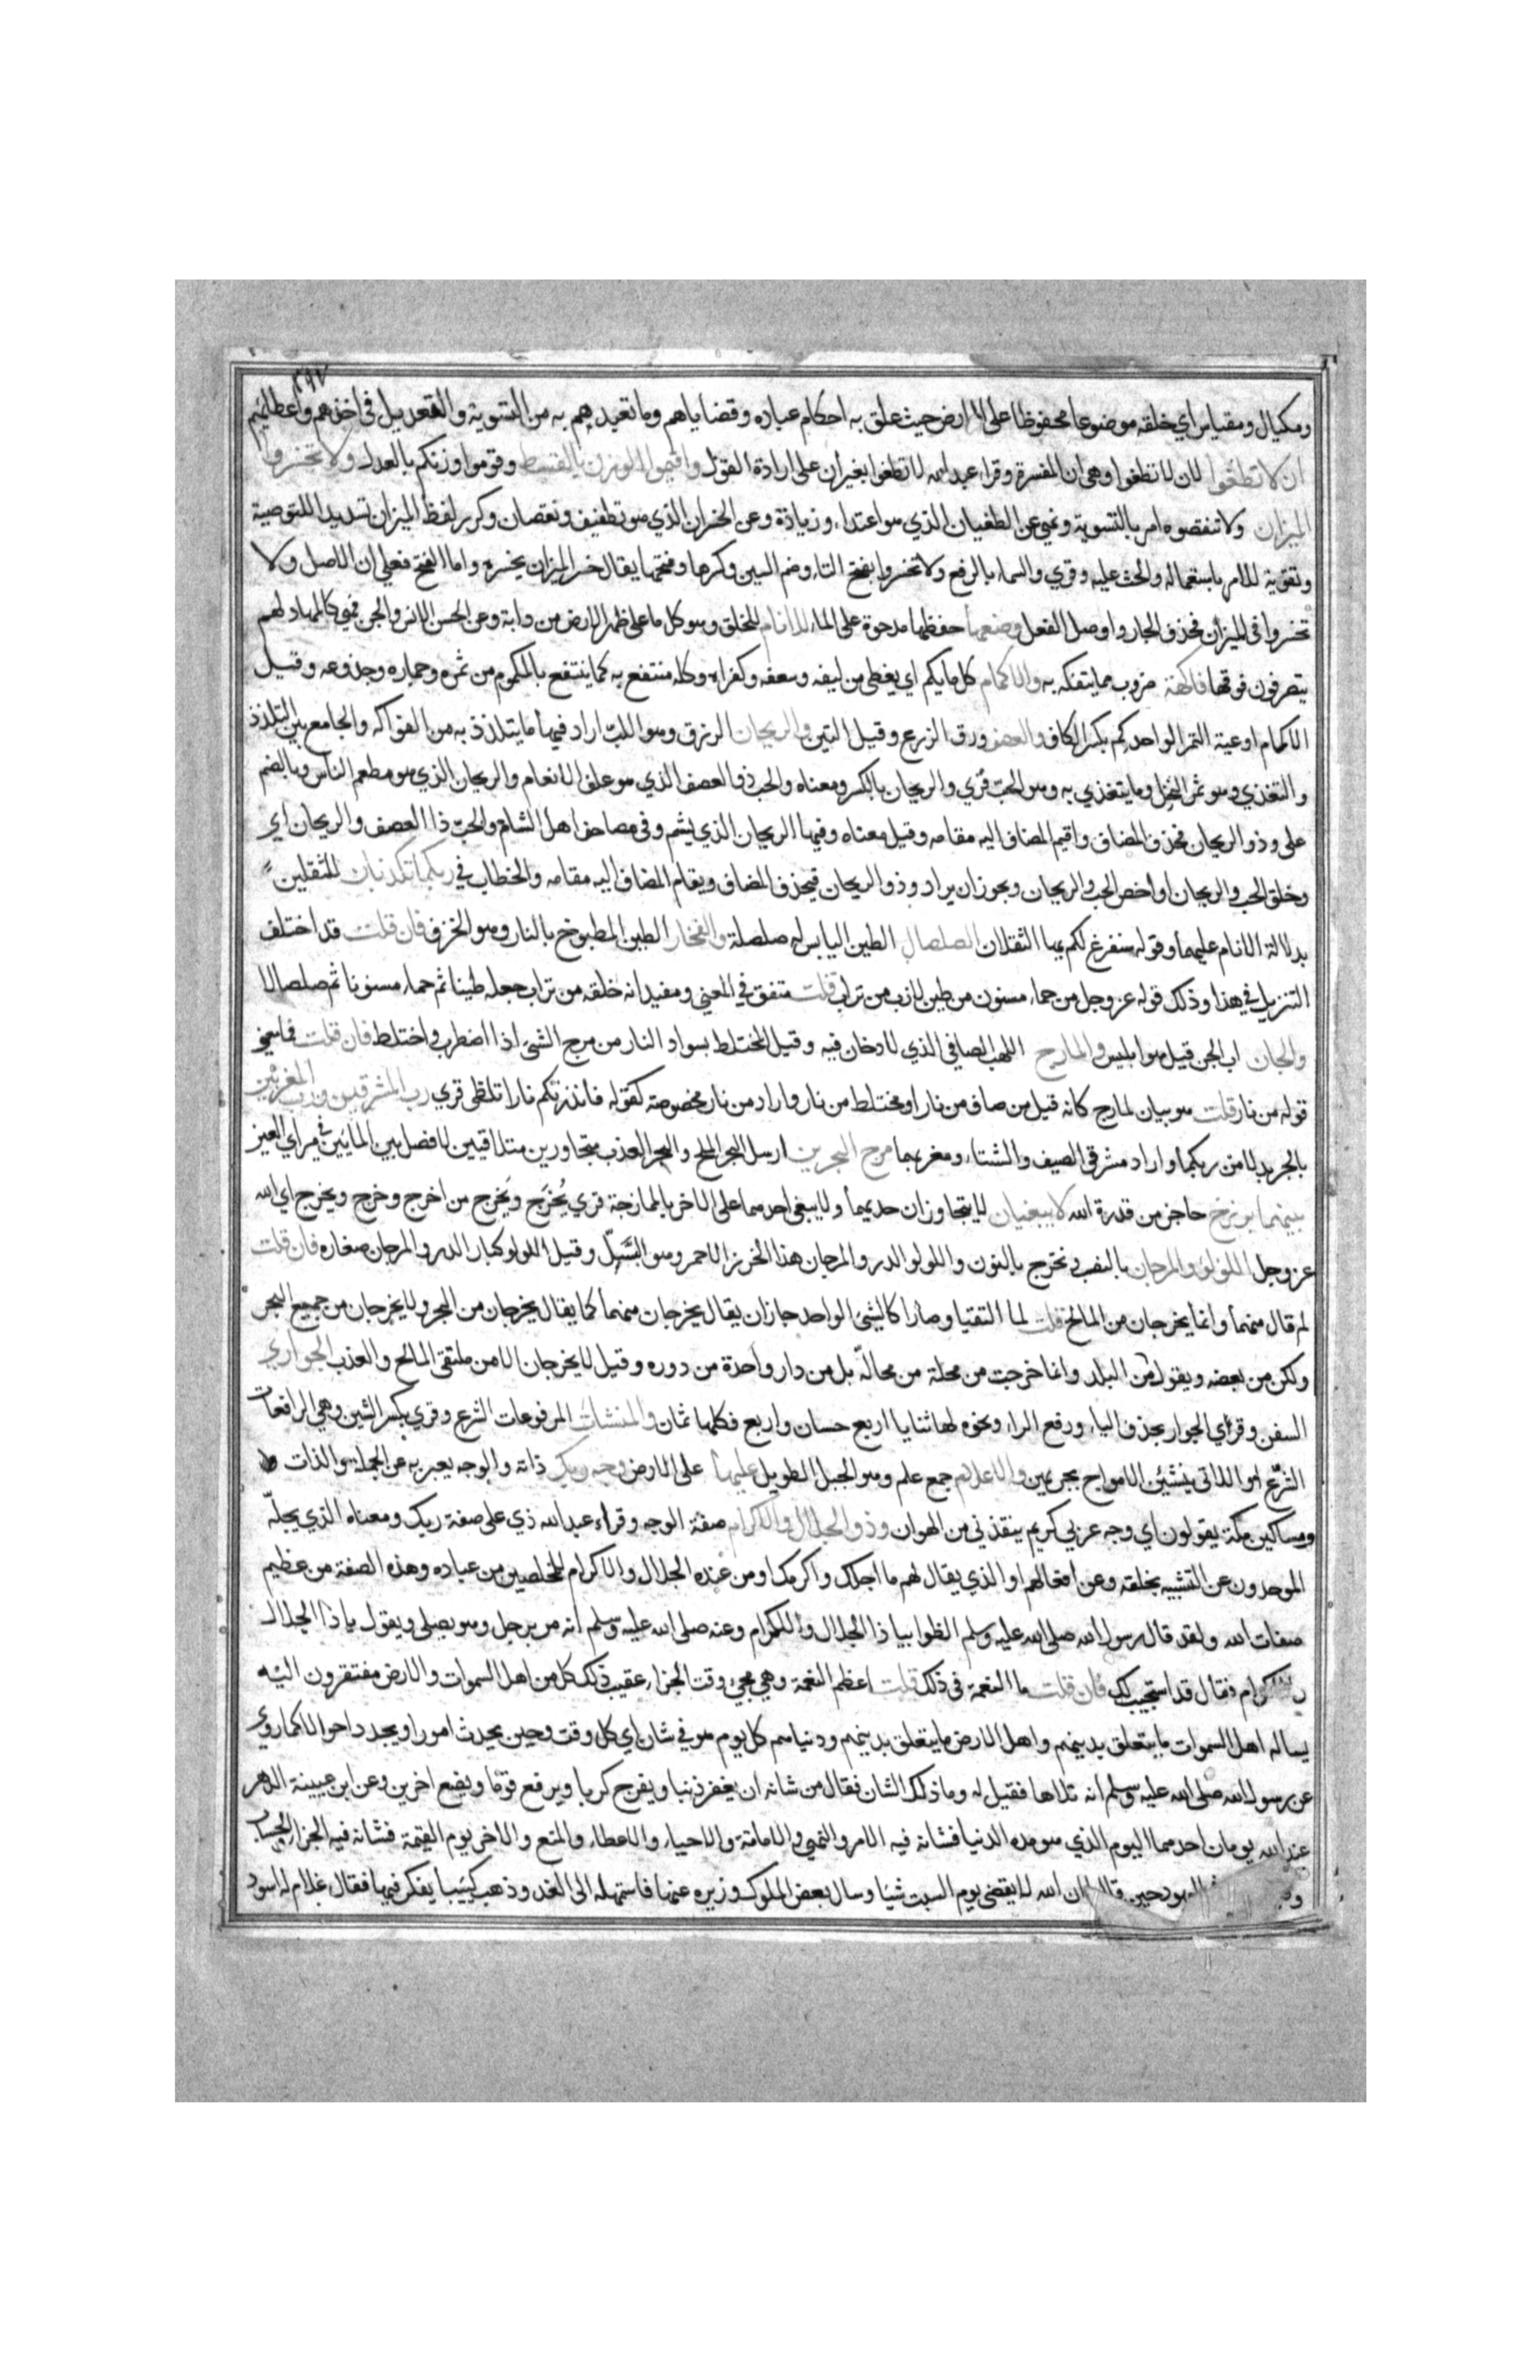 ٢٩٧
ومكيال ومقياس اي خلقه موضوعا محفوظا على الارض حيث علق به احكام عباده وقضاياهم وما تعبدهم به من التسوية والتعديل في اخذهم واعطائهم
ان لا تطغوا لان لا تطغوا وهي ان المفسرة وقراء عبد الله لا تطغوا بغير ان على ارادة القول واقيموا الوزن بالقسط وقوموا وزنكم بالعدل ولا تخسروا
الميزان ولا تنقصوه امر بالتسوية ونهي عن الطغيان الذي هو اعتداء وزيادة وعن الخسران الذي هو تطفيف ونقصان وكرر لفظ الميزان تشديدا للتوصية
وتقوية للامر باستعماله والحث عليه وقري والسماء بالرفع ولا تخسروا بفتح التاء وضم السين وكسرها وفتحها يقال خسر الميزان يخسره واما الفتح فعلى ان الاصل ولا
تخسروا في الميزان فحذف الجار واوصل الفعل وضعها حفظها مدحوة على الماء للانام للخلق وهو كل ما على ظهر الارض من دابة وعن الحسن الانس والجن فهي كالمهاد لهم
يتصرفون فوقها فاكهة ضروب مما يتفكه به والاكمام كل ما يكم اي يغطى من ليفه وسعفه وكفراه وكله منتفع به كما ينتفع بالمكموم من ثمره وجماره وجذوعه وقيل
الاكمام اوعية التمر الواحد كم بكسر الكاف والعصف ورق الزرع وقيل التبن والريحان الرزق وهو اللب اراد فيها ما يتلذذ به من الفواكه والجامع بين التلذذ
والتغذي وهو ثمر النخل وما يتغذي به وهو الحب قري والريحان بالكسر ومعناه والحب ذو العصف الذي هو علف الانعام والريحان الذي هو مطعم الناس وبالضم
على وذو الريحان فحذف المضاف واقيم المضاف اليه مقامه وقيل معناه وفيها الريحان الذي يشم وفي مصاحف اهل الشام والحب ذا العصف والريحان اي
وخلق الحب والريحان او اخص الحب والريحان ويجوز ان يراد وذو الريحان فيحذف المضاف ويقام المضاف اليه مقامه والخطاب في ربكما تكذبان للثقلين
بدلالة الانام عليهما وقوله سنفرغ لكم ايها الثقلان الصلصال الطين اليابس له صلصلة والفخار الطين المطبوخ بالنار وهو الخزف فان قلت قد اختلف
التنزيل في هذا وذلك قوله عز وجل من حماء مسنون من طين لازب من تراب قلت متفق في المعني ومفيد انه خلقه من تراب جعله طينا ثم حماء مسنونا ثم صلصالا
والجان اب الجن قيل هو ابليس والمارج اللهب الصافي الذي لا دخان فيه وقيل المختلط بسواد النار من مرج الشيء اذا اضطرب واختلط فان قلت فما معنى
قوله من نار قلت هو بيان لمارج كانه قيل من صاف من نار او مختلط من نار او اراد من نار مخصوصة كقوله فانذرتكم نارا تلظى قري رب المشرقين ورب المغربين
بالجر بدلا من ربكما واراد مشرقي الصيف والشتاء ومغربهما مرج البحرين ارسل البحر الملح والبحر العذب متجاورين متلاقيين لا فصل بين المائين في مراي العين
بينهما برزخ حاجز من قدرة الله لا يبغيان لا يتجاوزان حديهما ولا يبغي احدهما على الاخر بالممازجة قري يُخرَج ويَخرج من اخرج وخرج ويخرج اي الله
عز وجل اللولو والمرجان بالنصب ونخرج بالنون واللولو الدر والمرجان هذا الخرز الاحمر وهو البسّذ وقيل اللولو كبار الدر والمرجان صغاره فان قلت
لم قال منهما وانما يخرجان من المالح قلت لما التقيا وصارا كالشيء الواحد جاز ان يقال يخرجان منهما كما يقال يخرجان من البحر ولا يخرجان من جميع البحر
ولكن من بعضه ويقول من البلد وانما خرجت من محلة من محاله بل من دار واحدة من دوره وقيل لا يخرجان الا من ملتقى المالح والعذب الجواري
السفن وقراي الجوار بحذف الياء ورفع الراء ونحوه لها ثنايا اربع حسان واربع فكلها ثمان والمنشات المرفوعات الشرع وقري بكسر الشين وهي الرافعات
الشرّع او اللاتي ينشئن الامواج بجريهن والاعلام جمع علم وهو الجبل الطويل عليها على الارض وجه ربك ذاته والوجه يعبر به عن الجملة والذات
ومساكين مكة يقولون اي وجه عربي كريم ينقذني من الهوان وذو الجلال والاكرام صفة الوجه وقراء عبد الله ذي على صفة ربك ومعناه الذي يجلّه
الموحدون عن التشبيه بخلقه وعن افعالهم او الذي يقال لهم ما اجلك واكرمك او من عنده الجلال والاكرام للمخلصين من عباده وهذه الصفة من عظيم
صفات الله ولقد قال رسول الله صلى الله عليه وسلم الظوا بيا ذا الجلال والاكرام وعنه صلى الله عليه وسلم انه مر برجل وهو يصلي ويقول يا ذا الجلال
والاكرام فقال قد استجيب لك فان قلت ما النعمة في ذلك قلت اعظم النعمة وهي مجيء وقت الجزاء عقيب ذلك كل من اهل السموات والارض مفتقرون اليه
يساله اهل السموات ما يتعلق بدينهم واهل الارض ما يتعلق بدينهم ودنياهم كل يوم هو في شان اي كل وقت وحين يحدث امورا ويجدد احوالا كما روي
عن رسول الله صلى الله عليه وسلم انه تلاها فقيل له وما ذلك الشان فقال من شانه ان يغفر ذنبا ويفرج كربا ويرفع قوما ويضع اخرين وعن ابن عيينة الدهر
عند الله يومان احدهما اليوم الذي هو مدة الدنيا فشانه فيه الامر والنهي والاماتة والاحياء والاعطاء والمنع والاخر يوم القيمة فشانه فيه الجزاء والحساب
اليهود حين قالوا ان الله لا يقضي يوم السبت شيا وسال بعض الملوك وزيره عنها فاستمهله الى الغد وذهب كئيبا يفكر فيها فقال غلام له اسود